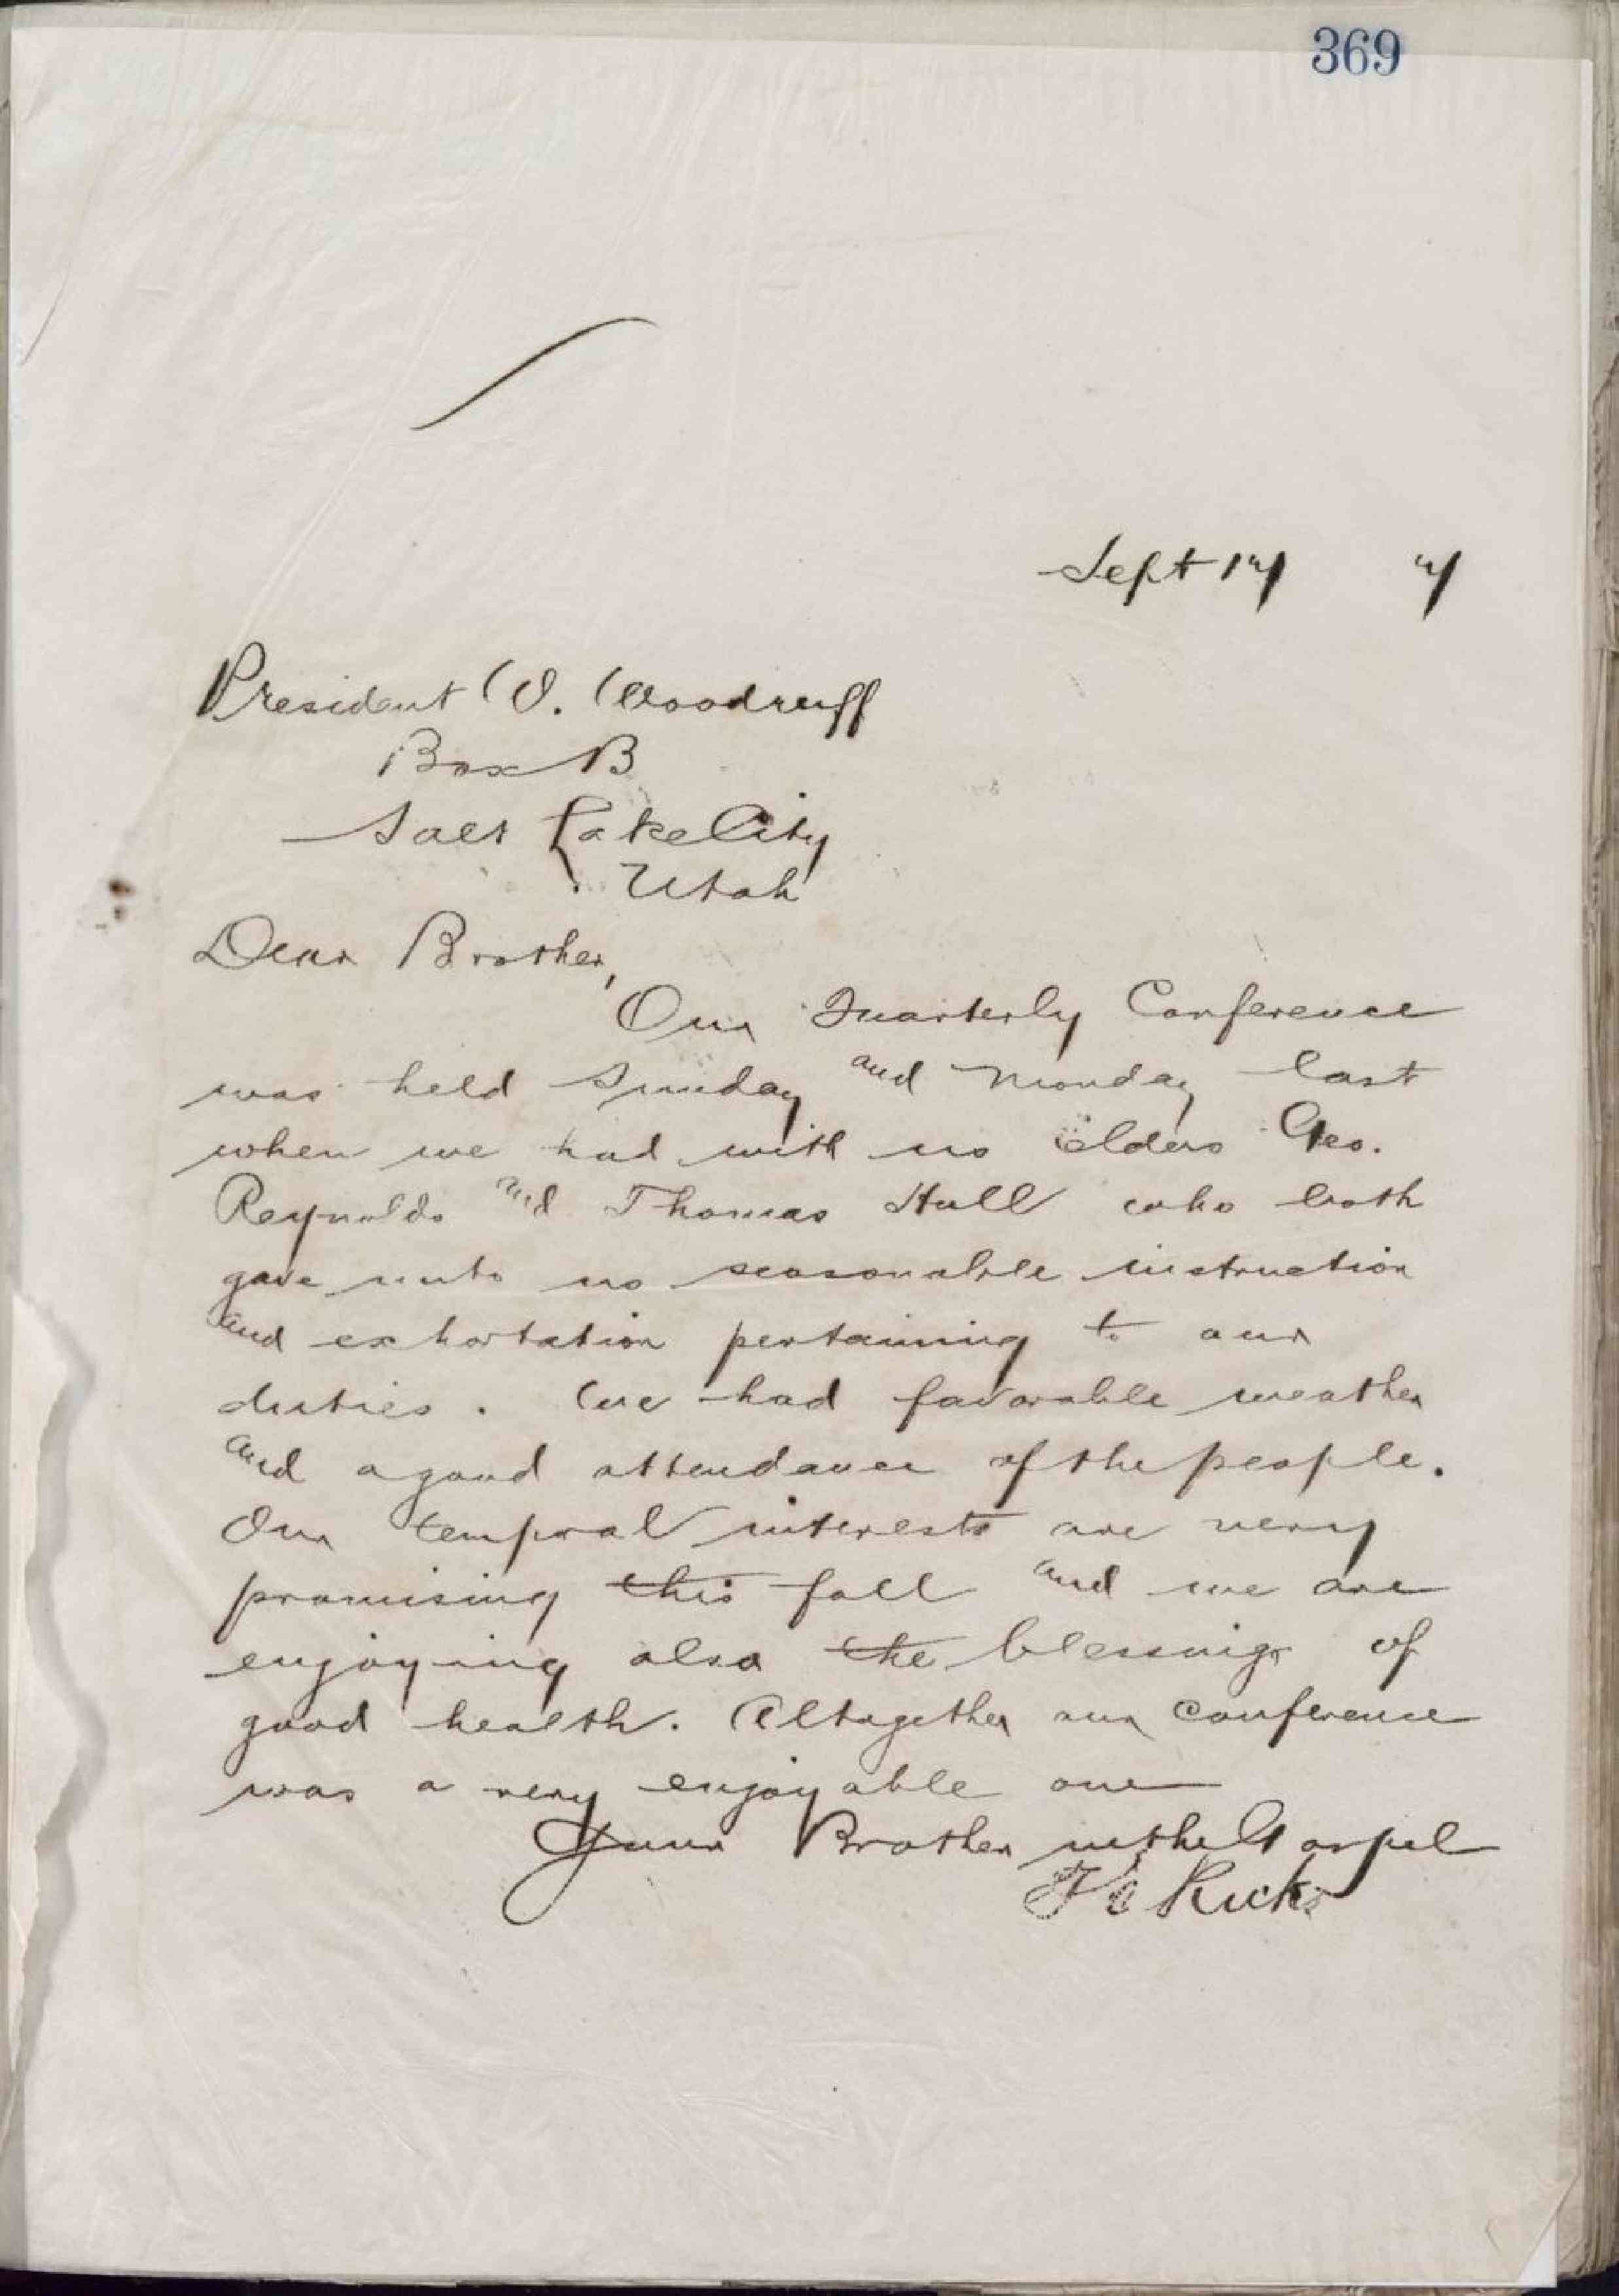 369
Sept 17 7
President W. Woodruff
Box B
Salt Lake City
Utah
Dear Brother,
Our Quarterly Conference
was held Sunday and Monday last
when we had with us elders Geo.
Reynolds and Thomas Hull who both
gave unto us seasonable instruction
and exhortation pertaining to our
duties. We had favorable weather
and a good attendance of the people.
Our temporal interests are very
promising this fall and we are
enjoying also the blessings of
good health. Altogether our conference
was a very enjoyable one
Your Brother in the Gospel
T E Ricks